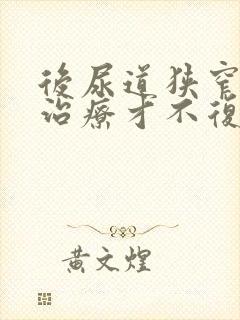 後尿道狹窄
治療才不復
黃文煌